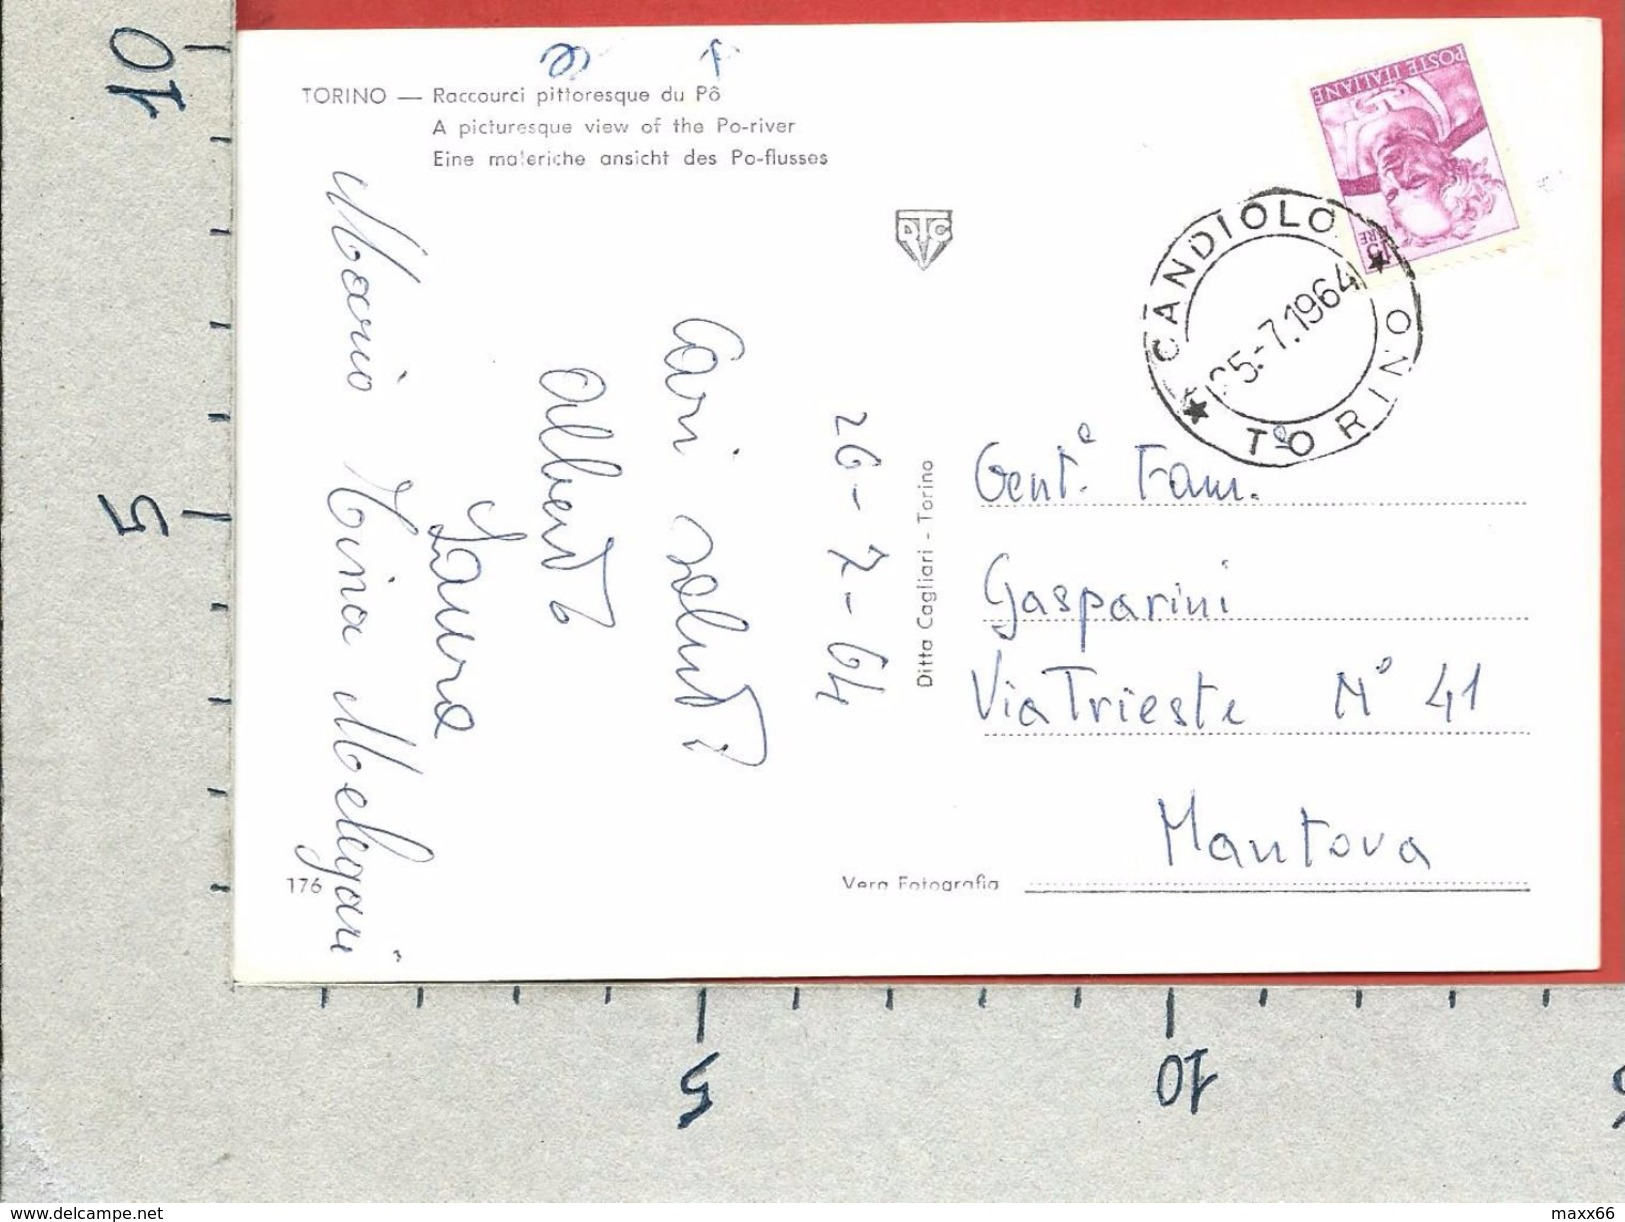 TORINO — Raccourci pittoresque du Pô
A picturesque view of the Po-river
Eine materiche ansicht des Po-flusses
DTC
POSTE ITALIANE
LIRE 15
CANDIOLO
TORINO
25.-7.1964
26-7-64
Cari saluti
Alberto
Laura
Mario Tina Melegari
Ditta Cagliari - Torino
Gent.e Fam.
Gasparini
Via Trieste N° 41
Mantova
176
Vera Fotografia
10
5
5
10
www.delcampe.net
maxx66